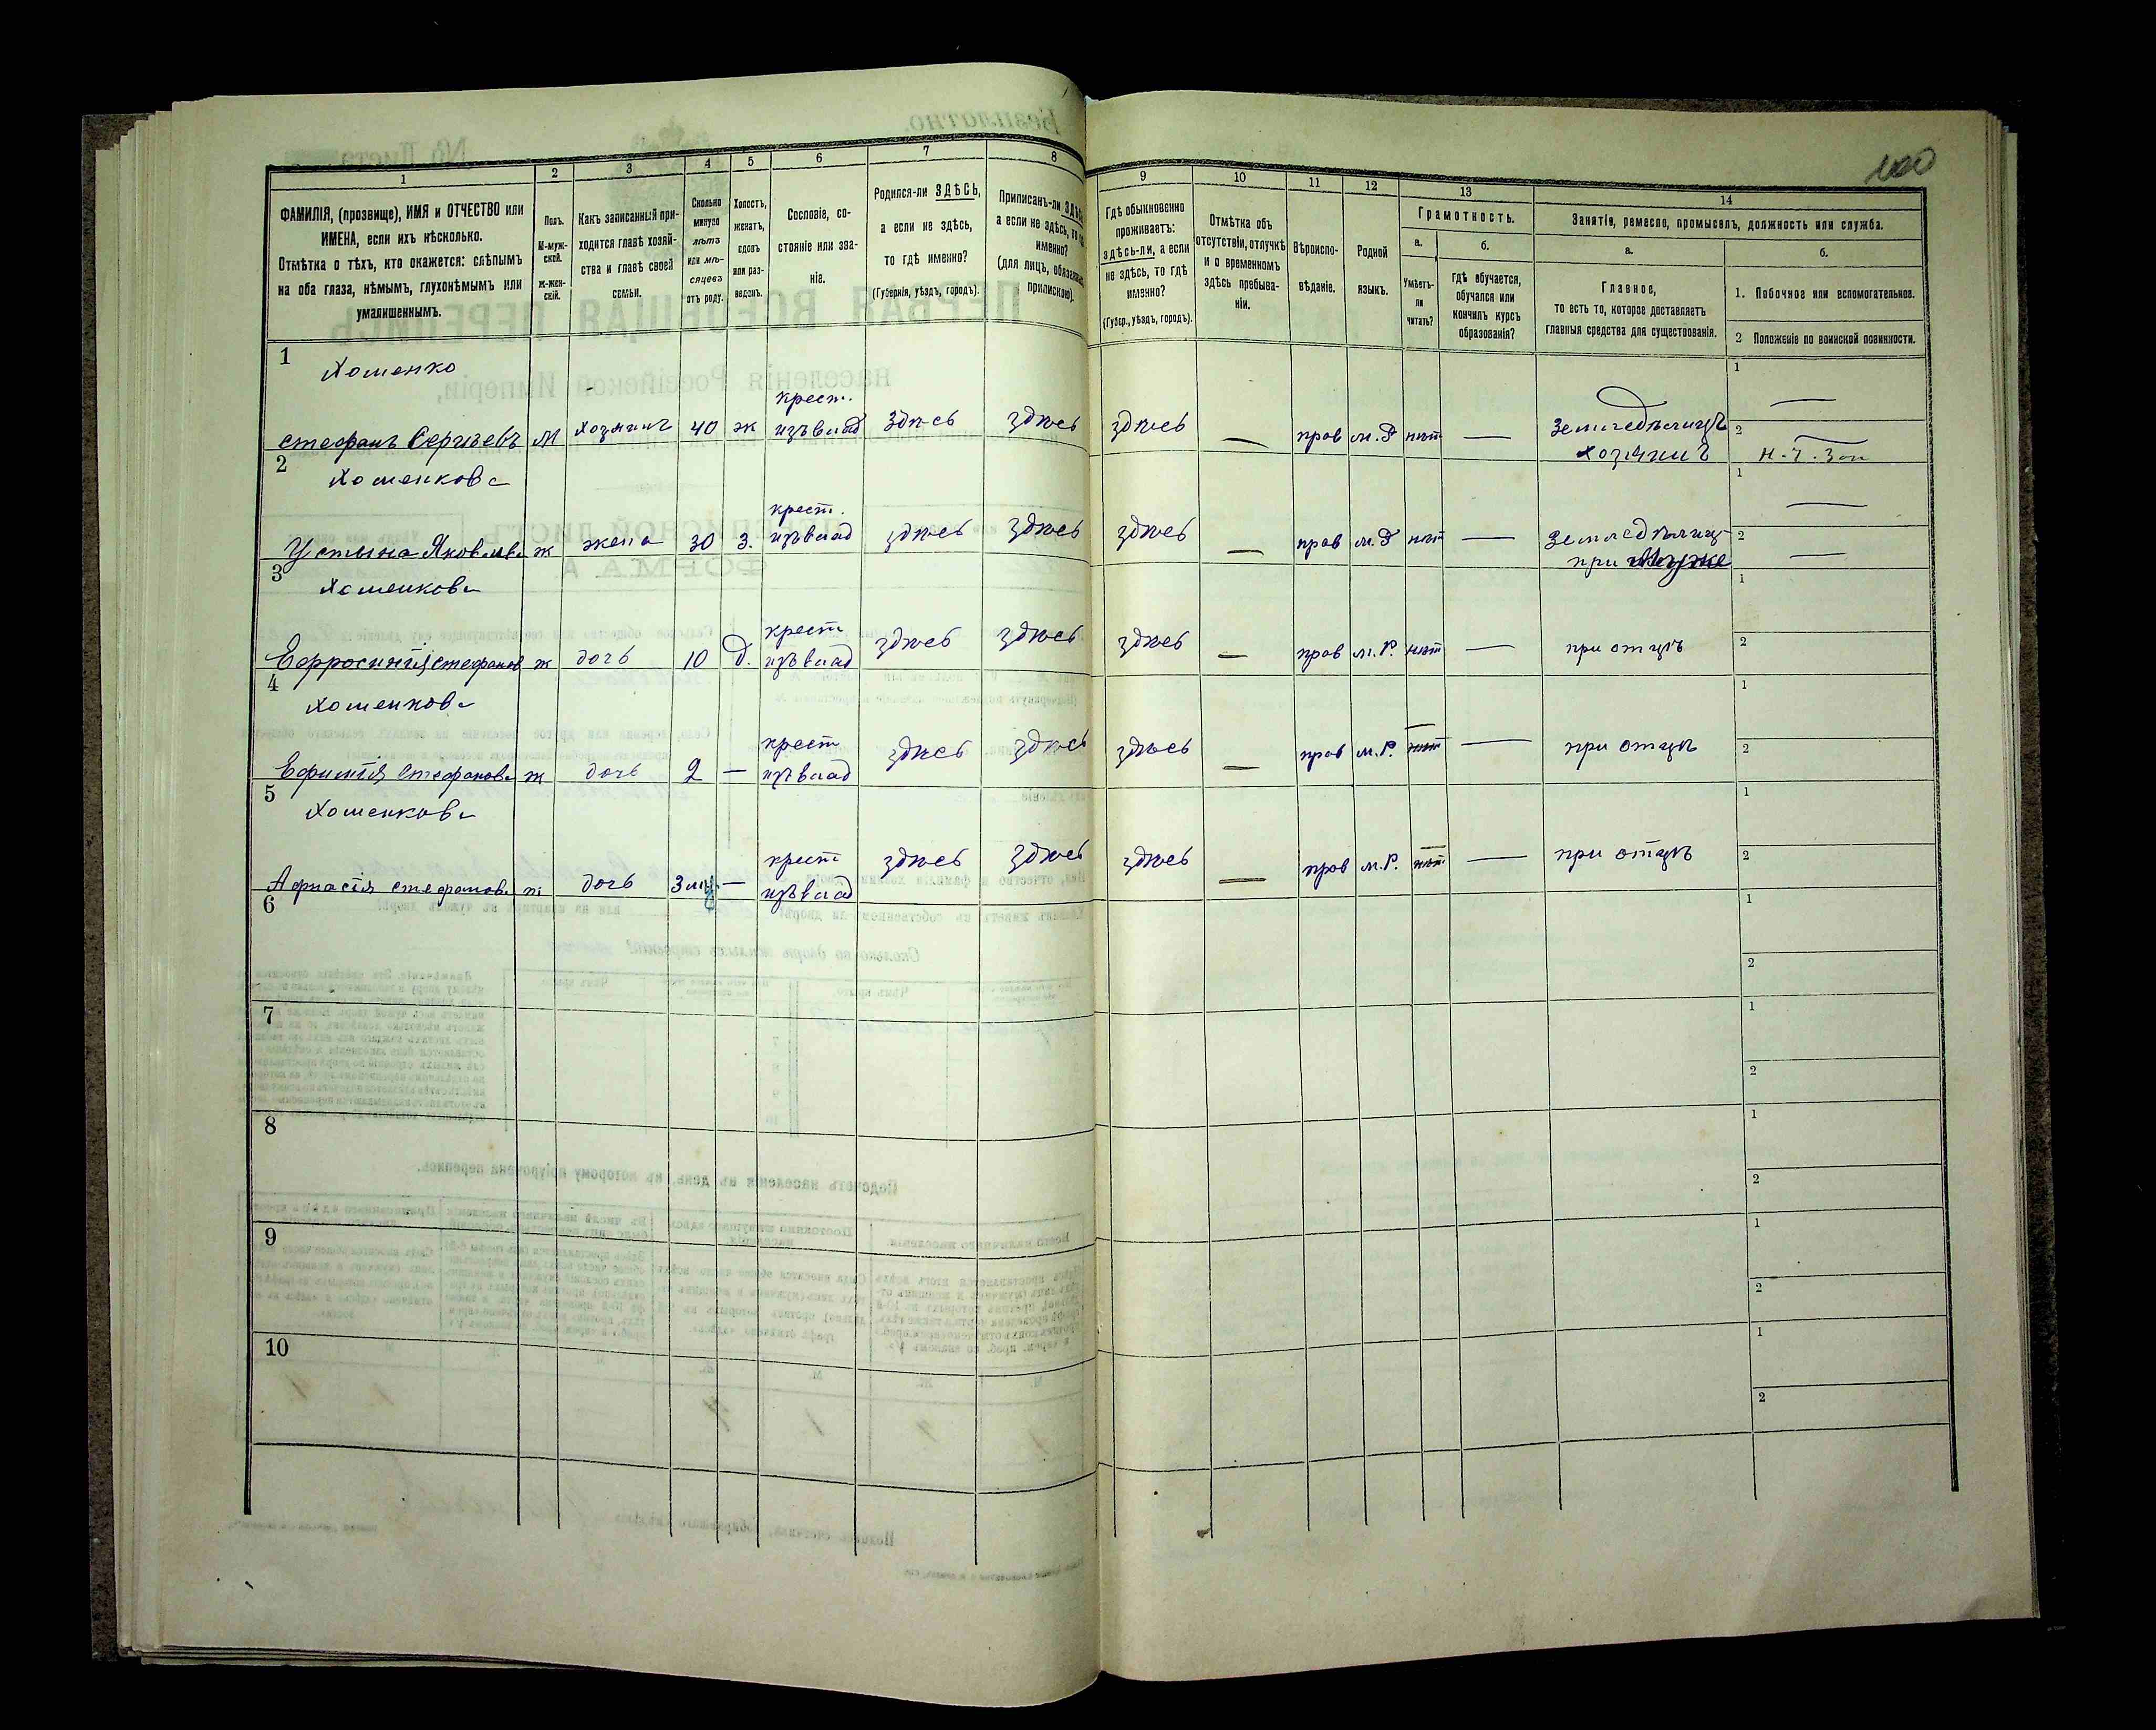 100
1 2 3 4 5 6 7 8 9 10 11 12 13 14
ФАМИЛІЯ, (прозвище), ИМЯ и ОТЧЕСТВО или
ИМЕНА, если ихъ нѣсколько.
Отмѣтка о тѣхъ, кто окажется: слѣпымъ
на оба глаза, нѣмымъ, глухонѣмымъ или
умалишеннымъ.
Полъ.
М-муж-
ской.
Ж-жен-
скій.
Какъ записанный при-
ходится главѣ хозяй-
ства и главѣ своей
семьи.
Сколько
минуло
лѣтъ
или мѣ-
сяцевъ
отъ роду.
Холостъ,
женатъ,
вдовъ
или раз-
веденъ.
Сословіе, со-
стояніе или зва-
ніе.
Родился-ли ЗДѢСЬ,
а если не здѣсь,
то гдѣ именно?
(Губернія, уѣздъ, городъ).
Приписанъ-ли
а если не здѣсь, то
именно?
(для лицъ,
припискою).
Гдѣ обыкновенно
проживаетъ:
здѣсь-ли, а если
не здѣсь, то гдѣ
именно?
(Губер., уѣздъ, городъ).
Отмѣтка объ
отсутствіи, отлучкѣ
и о временномъ
здѣсь пребыва-
ніи.
Вѣроиспо-
вѣданіе.
Родной
языкъ.
Грамотность.
а.
Умѣетъ-
ли
читать?
б.
Гдѣ обучается,
обучался или
кончилъ курсъ
образованія?
Занятіе, ремесло, промыселъ, должность или служба.
а.
Главное,
то есть то, которое доставляетъ
главныя средства для существованія.
б.
1. Побочное или вспомогательное.
2 Положеніе по воинской повинности.
1
Хоменко
крест.
Стефанъ Сергіевъ М хозяинъ 40 ж изъ влад здѣсь здѣсь здѣсь — прав м.Р нѣт — Земледѣлецъ
хозяинъ
1 —
2 —
2
Хоменкова
крест.
Устина Яковлева ж жена 30 З. изъ влад здѣсь здѣсь здѣсь — прав м.Р нѣт — Земледѣлец
при муже
1 —
2 —
3
Хоменкова
крест
Ефросинія Стефанов ж дочь 10 д. изъ влад здѣсь здѣсь здѣсь — прав м.Р. нѣт — при отцѣ
1
2
4
Хоменкова
крест
Стефанова ж дочь 2 — изъ влад здѣсь здѣсь здѣсь — прав м.Р. нѣт — при отцѣ
1
2
5
Хоменкова
крест
Стефанова ж дочь 3 — изъ влад здѣсь здѣсь здѣсь — прав м.Р. нѣт — при отцѣ
1
2
6
1
2
7
1
2
8
1
2
9
1
2
10
1
2